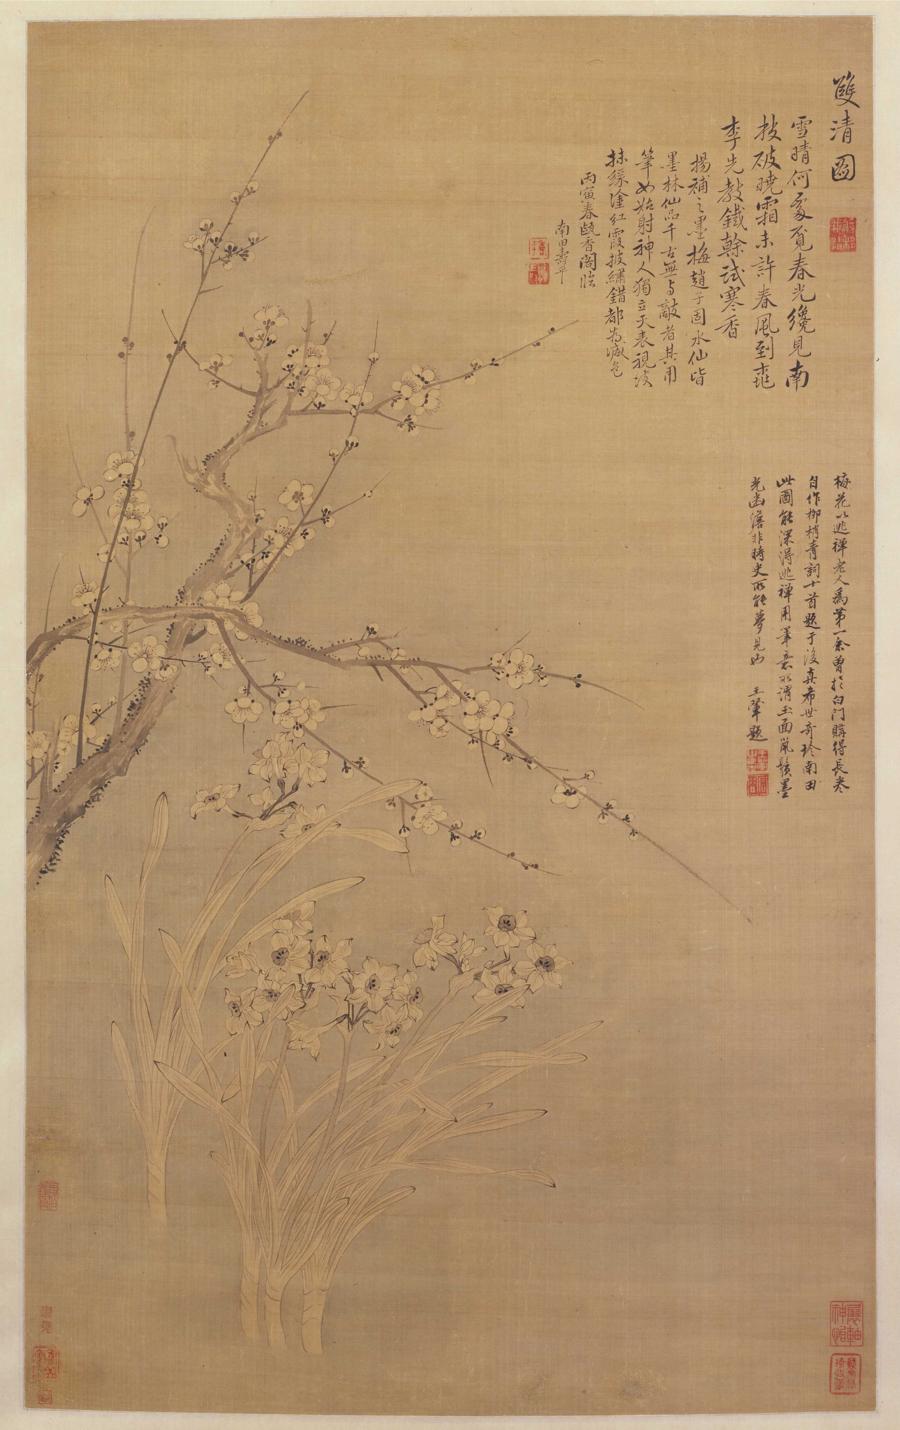 雙清圖
雪晴何處覓春光纔見南
枝破曉霜未許春風到桃
李先教鐵幹試寒香
揚補之墨梅趙子固水仙皆
墨林仙品千古無與敵者其用
筆如姑射神人獨立天表視後
抹綠塗紅霞披繡錯都為減色
丙寅春甌香閣臨
南田壽平
梅花以逃禪老人為第一余曾於白門購得長卷
自作柳梢青詞十首題于後真希世奇珍南田
此圖能深得逃禪用筆意水消玉面鼠鬚墨
光幽澹非時史所能夢見也 王翬題